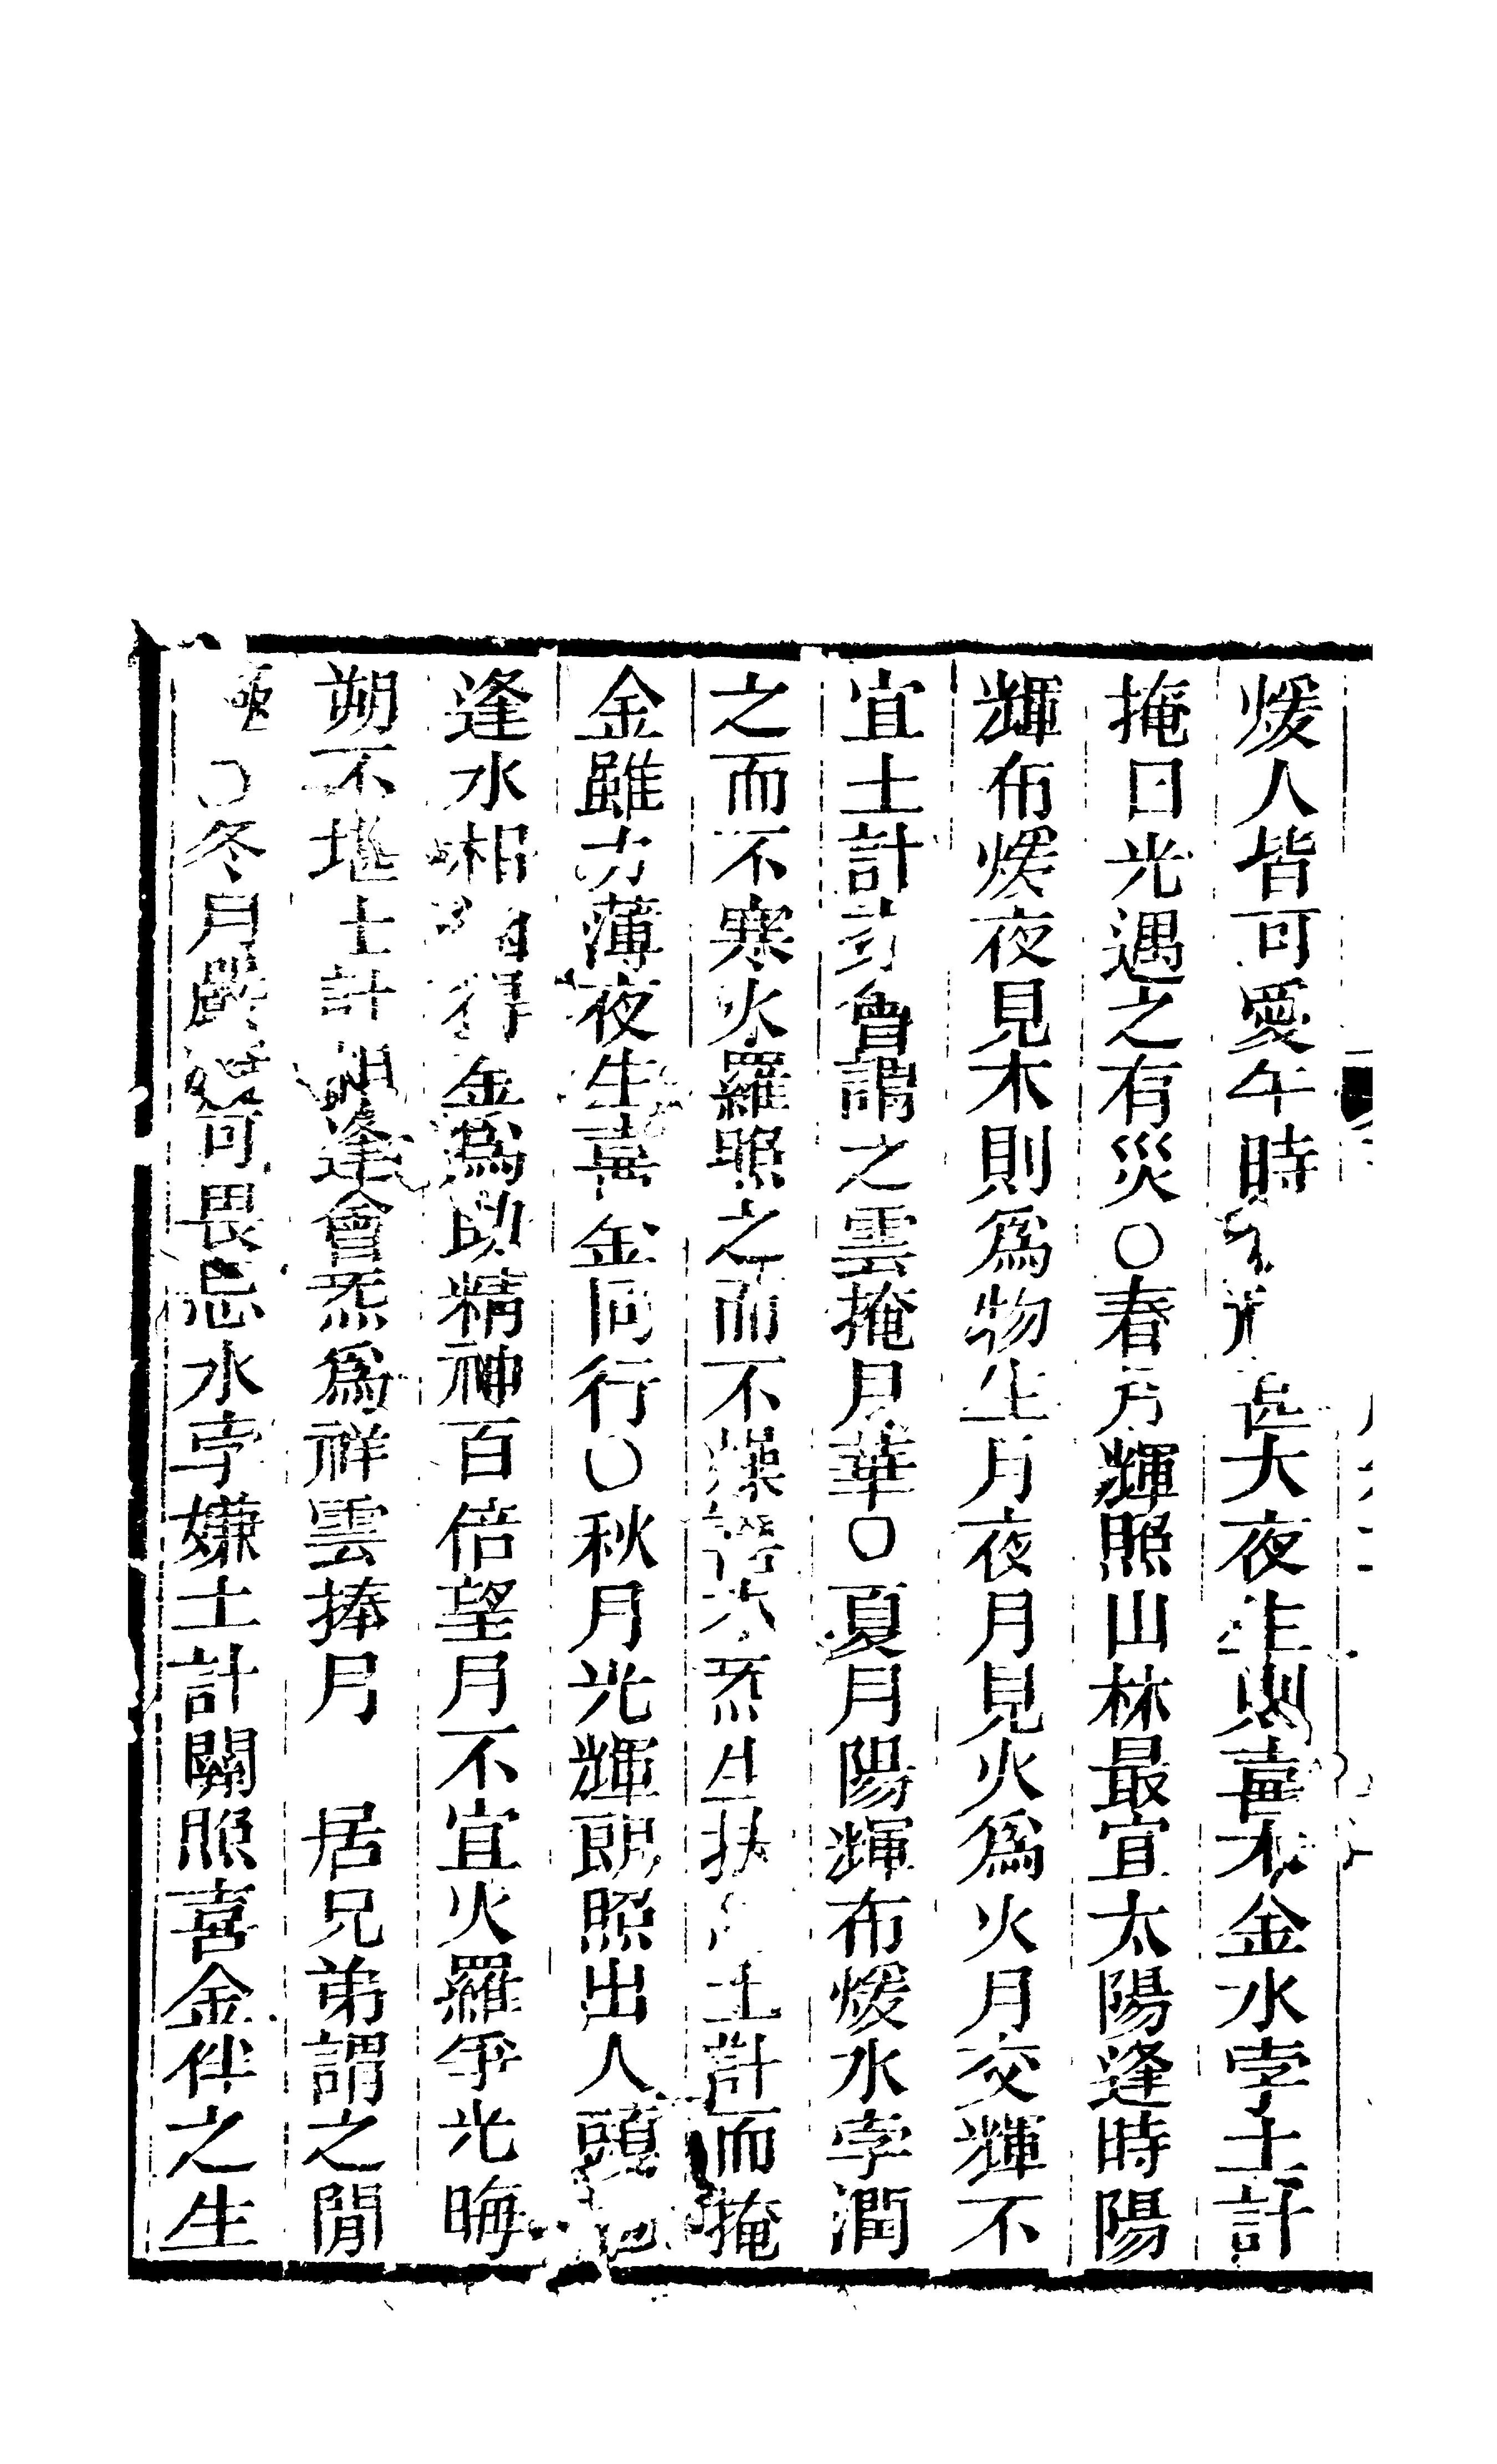 煖人皆可愛午時光大夜生則喜木金水孛土計
掩日光遇之有災〇春月輝照山林最宜太陽逢時陽
輝布煖夜見木則爲物生月夜月見火爲火月交輝不
宜土計竝會謂之雲掩月華〇夏月陽輝布煖水孛潤
之而不寒火羅照之而不燥炁生扶土計而掩
金雖力薄夜生喜金同行〇秋月光輝朗照出人頭地
逢水相得金爲助精神百倍望月不宜火羅爭光晦
朔不堪土計相逢會炁爲祥雲捧月 居兄弟謂之閒
〇冬月嚴可畏忌水孛嫌土計關照喜金伴之生